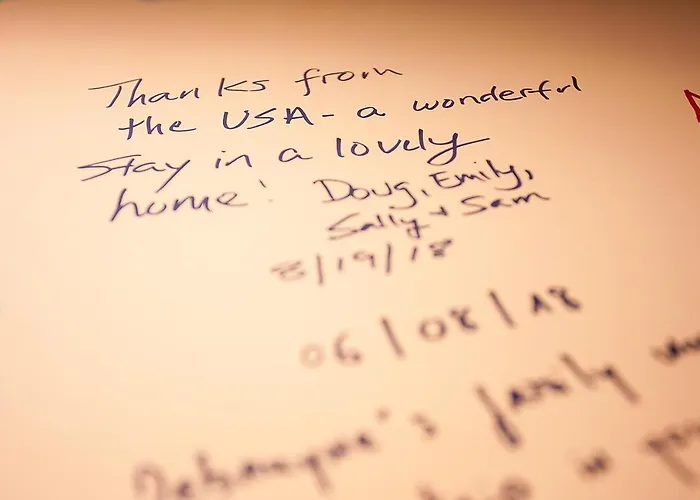 Thanks from
the USA - a wonderful
stay in a lovely
home! Doug, Emily,
Sally + Sam
8/19/18
06/08/18
family
is